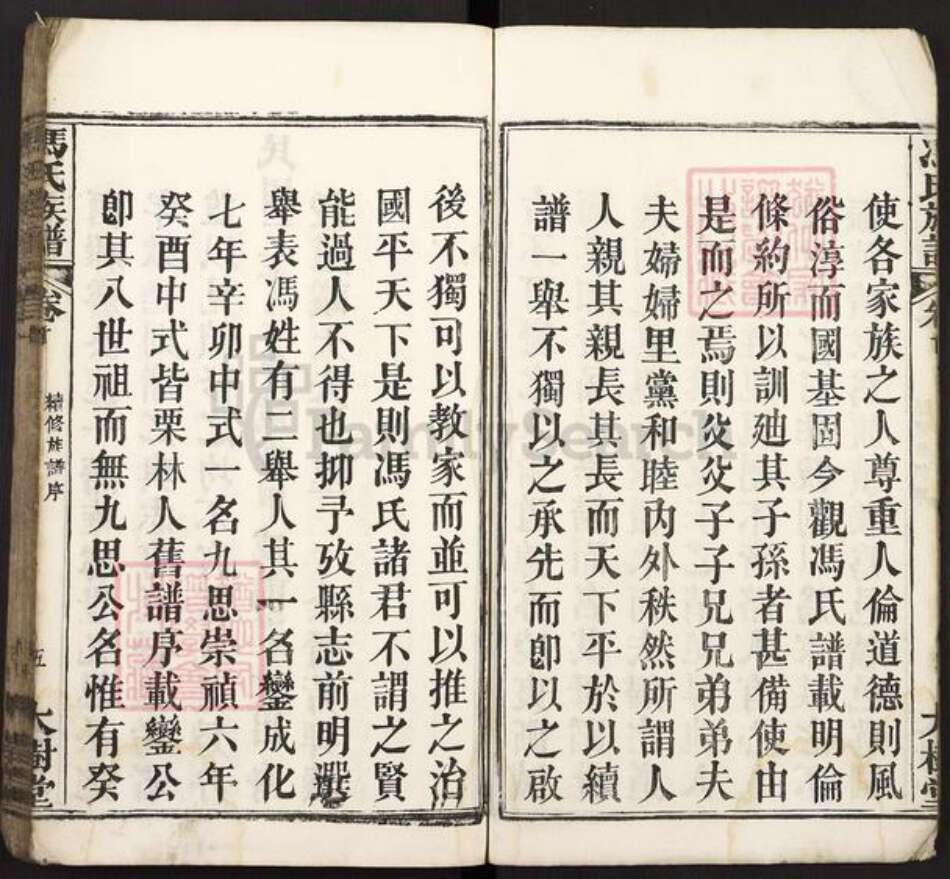 使各家族之人尊重人倫道德則風
俗淳而國基固今觀馮氏譜載明倫
條約所以訓廸其子孫者甚備使由
是而之焉則父父子子兄兄弟弟夫
夫婦婦里黨和睦內外秩然所謂人
人親其親長其長而天下平於以續
譜一舉不獨以之承先而卽以之啟
後不獨可以教家而並可以推之治
國平天下是則馮氏諸君不謂之賢
能過人不得也抑予攷縣志前明選
舉表馮姓有二舉人其一名鑾成化
七年辛卯中式一名九思崇禎六年
癸酉中式皆栗林人舊譜序載鑾公
卽其八世祖而無九思公名惟有癸
馮氏族譜
卷首
續修族譜序
五
大樹堂
FamilySearch